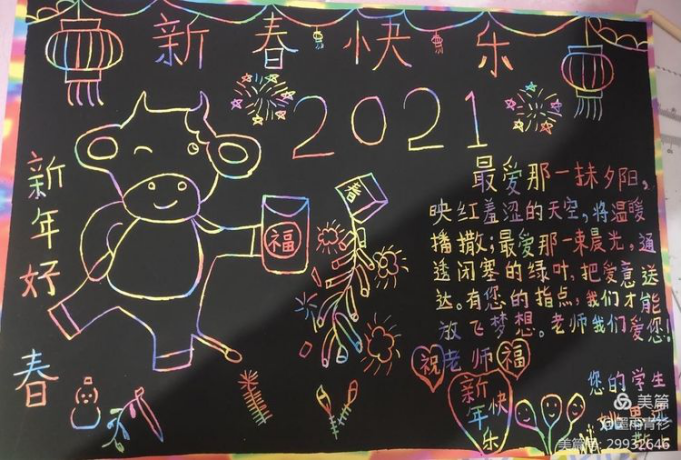 新春快乐
2021
新年好
春
福
春
最爱那一抹夕阳，
映红羞涩的天空，将温暖
播撒；最爱那一束晨光，通
透闭塞的绿叶，把爱意送
达。有您的指点，我们才能
放飞梦想。老师我们爱您！
祝老师福
新年快乐
您的学生
美篇
美篇号：29932646